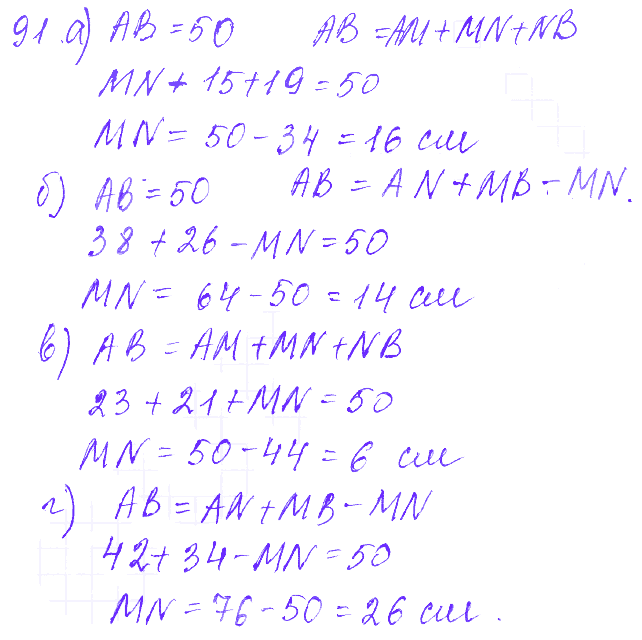 91. а) AB = 50 AB = AM + MN + NB
MN + 15 + 19 = 50
MN = 50 - 34 = 16 см
б) AB = 50 AB = AN + MB - MN.
38 + 26 - MN = 50
MN = 64 - 50 = 14 см
в) AB = AM + MN + NB
23 + 21 + MN = 50
MN = 50 - 44 = 6 см
г) AB = AN + MB - MN
42 + 34 - MN = 50
MN = 76 - 50 = 26 см.